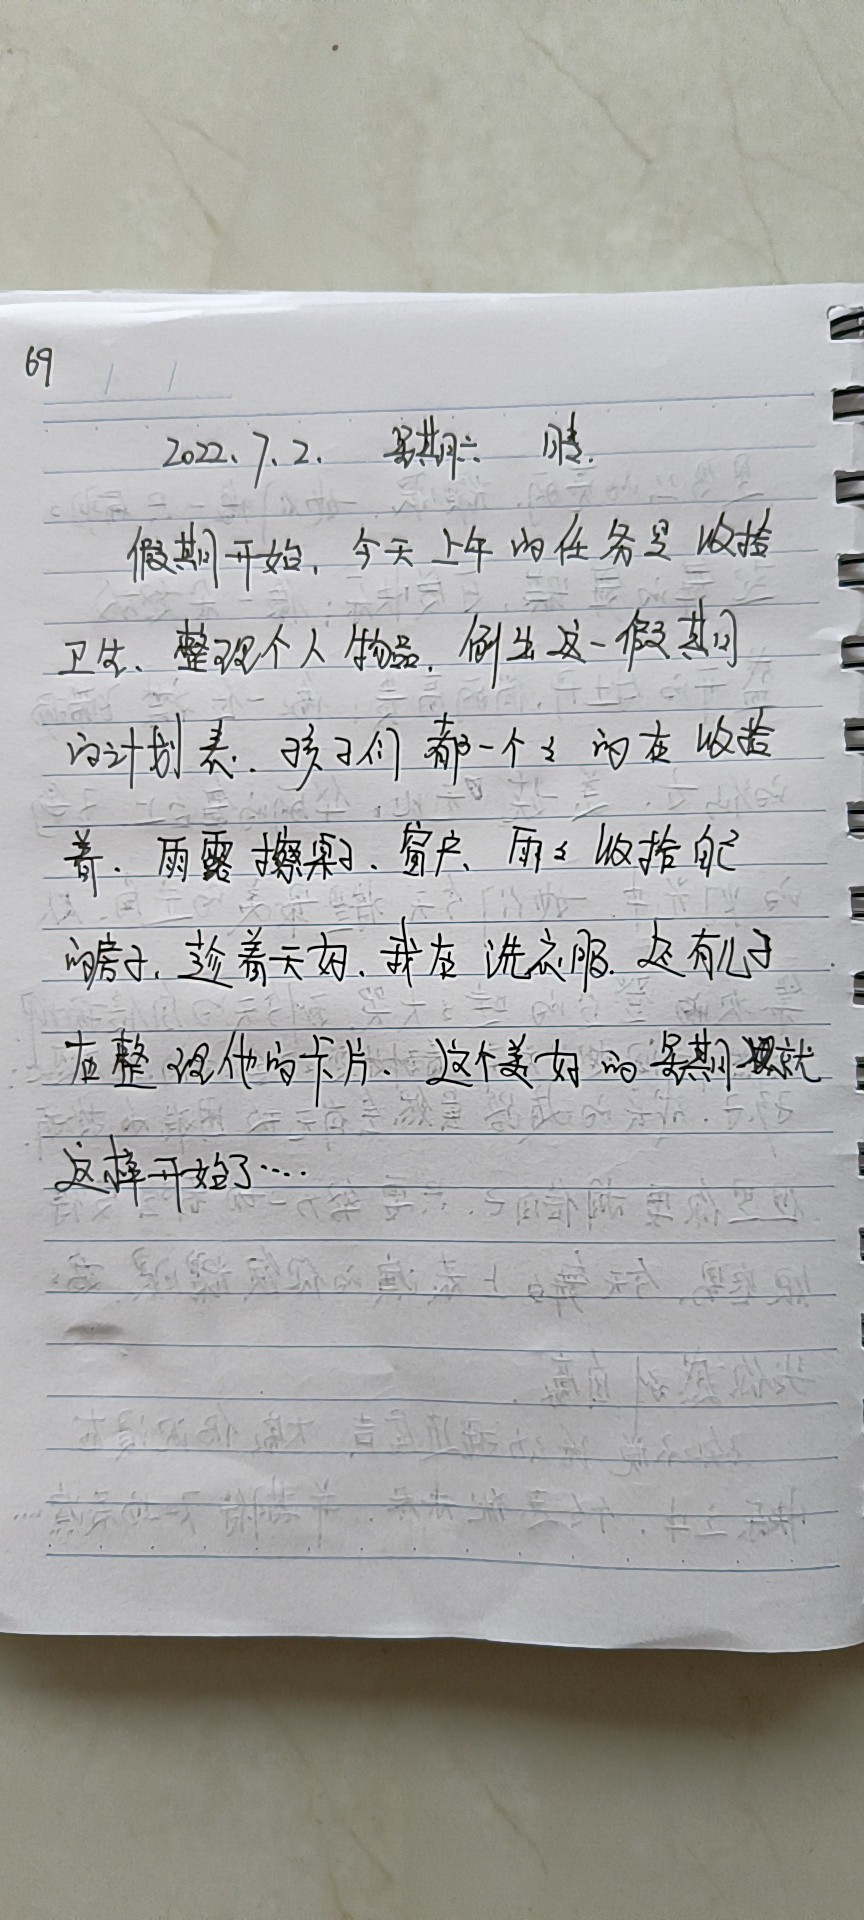 69
2022.7.2. 星期六 晴.
假期开始,今天上午的任务是收拾
卫生、整理个人物品,例出这一假期间
的计划表.孩子们都一个々的在收拾
着.雨露擦桌子、窗户、雨々收拾自己
的房子,趁着天好、我在洗衣服.还有儿子
在整理他的卡片、这个美好的星期就
这样开始了....